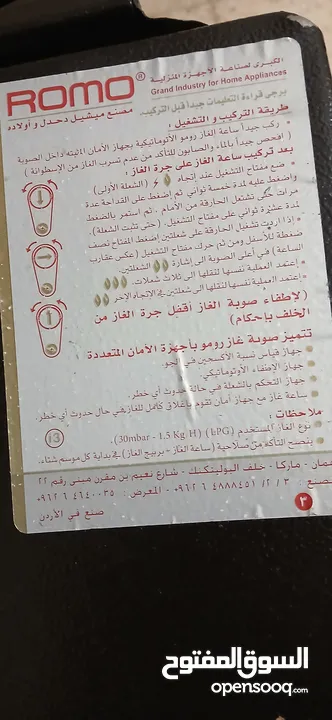 ROMO®
الكبرى لصناعة الاجهزة المنزلية
Grand Industry for Home Appliances
مصنع ميشيل دحدل و أولاده
يرجى قراءة التعليمات جيداً قبل التركيب
طريقة التركيب و التشغيل :
ركب جيداً ساعة الغاز رومو الأتوماتيكية بجهاز الأمان المثبته داخل الصوبة
( افحص جيداً بالماء والصابون للتأكد من عدم تسرب الغاز من الإسطوانة )
بعد تركيب ساعة الغاز على جرة الغاز :
ضع مفتاح التشغيل عند إتجاه (الشعلة الأولى)
واضغط عليه لمدة خمسة ثواني ثم إضغط على القداحة عدة
مرات حتى تشتعل الحارقة من الأمام ، ثم أستمر بالضغط
لمدة عشرة ثواني على مفتاح التشغيل (حتى تثبت الشعلة).
إذا اريت تشغيل الحارقة على شعلتين إضغط المفتاح نصف
ضغطة للأسفل ومن ثم حرك مفتاح التشغيل (عكس عقارب
الساعة) في أعلى الصوبة الى إشارة الشعلتين.
إعتمد العملية نفسها لنقلها الى ثلاث شعلات.
إعتمد العملية نفسها لنقلها الى شعلتين في الاتجاه الاخر
(لإطفاء صوبة الغاز أقفل جرة الغاز من
الخلف بإحكام)
تتميز صوبة غاز رومو بأجهزة الأمان المتعددة
جهاز قياس نسبة الأكسجين في الجو.
جهاز الإطفاء الأوتوماتيكي.
جهاز التحكم بالشعلة في حالة حدوث أي خطر.
ساعة غاز مع جهاز أمان تقوم بإغلاق كامل للغاز في حال حدوث أي خطر.
ملاحظات :
نوع الغاز المستخدم (LPG) (30mbar - 1.5 Kg H).
ينصح التأكد من صلاحية (ساعة الغاز - بربيج الغاز) في بداية كل موسم شتاء.
13
عمان - ماركا - خلف البوليتكنك - شارع نعيم بن مقرن مبنى رقم ٢٢
مصنع : ٣ / ٢ / ٤٨٨٨٤٥١ ٦ ٠٠٩٦٢ - المعرض : ٤٦٤٠٠٣٥ ٦ ٠٠٩٦٢
صنع في الأردن
٣
السوق المفتوح
opensooq.com